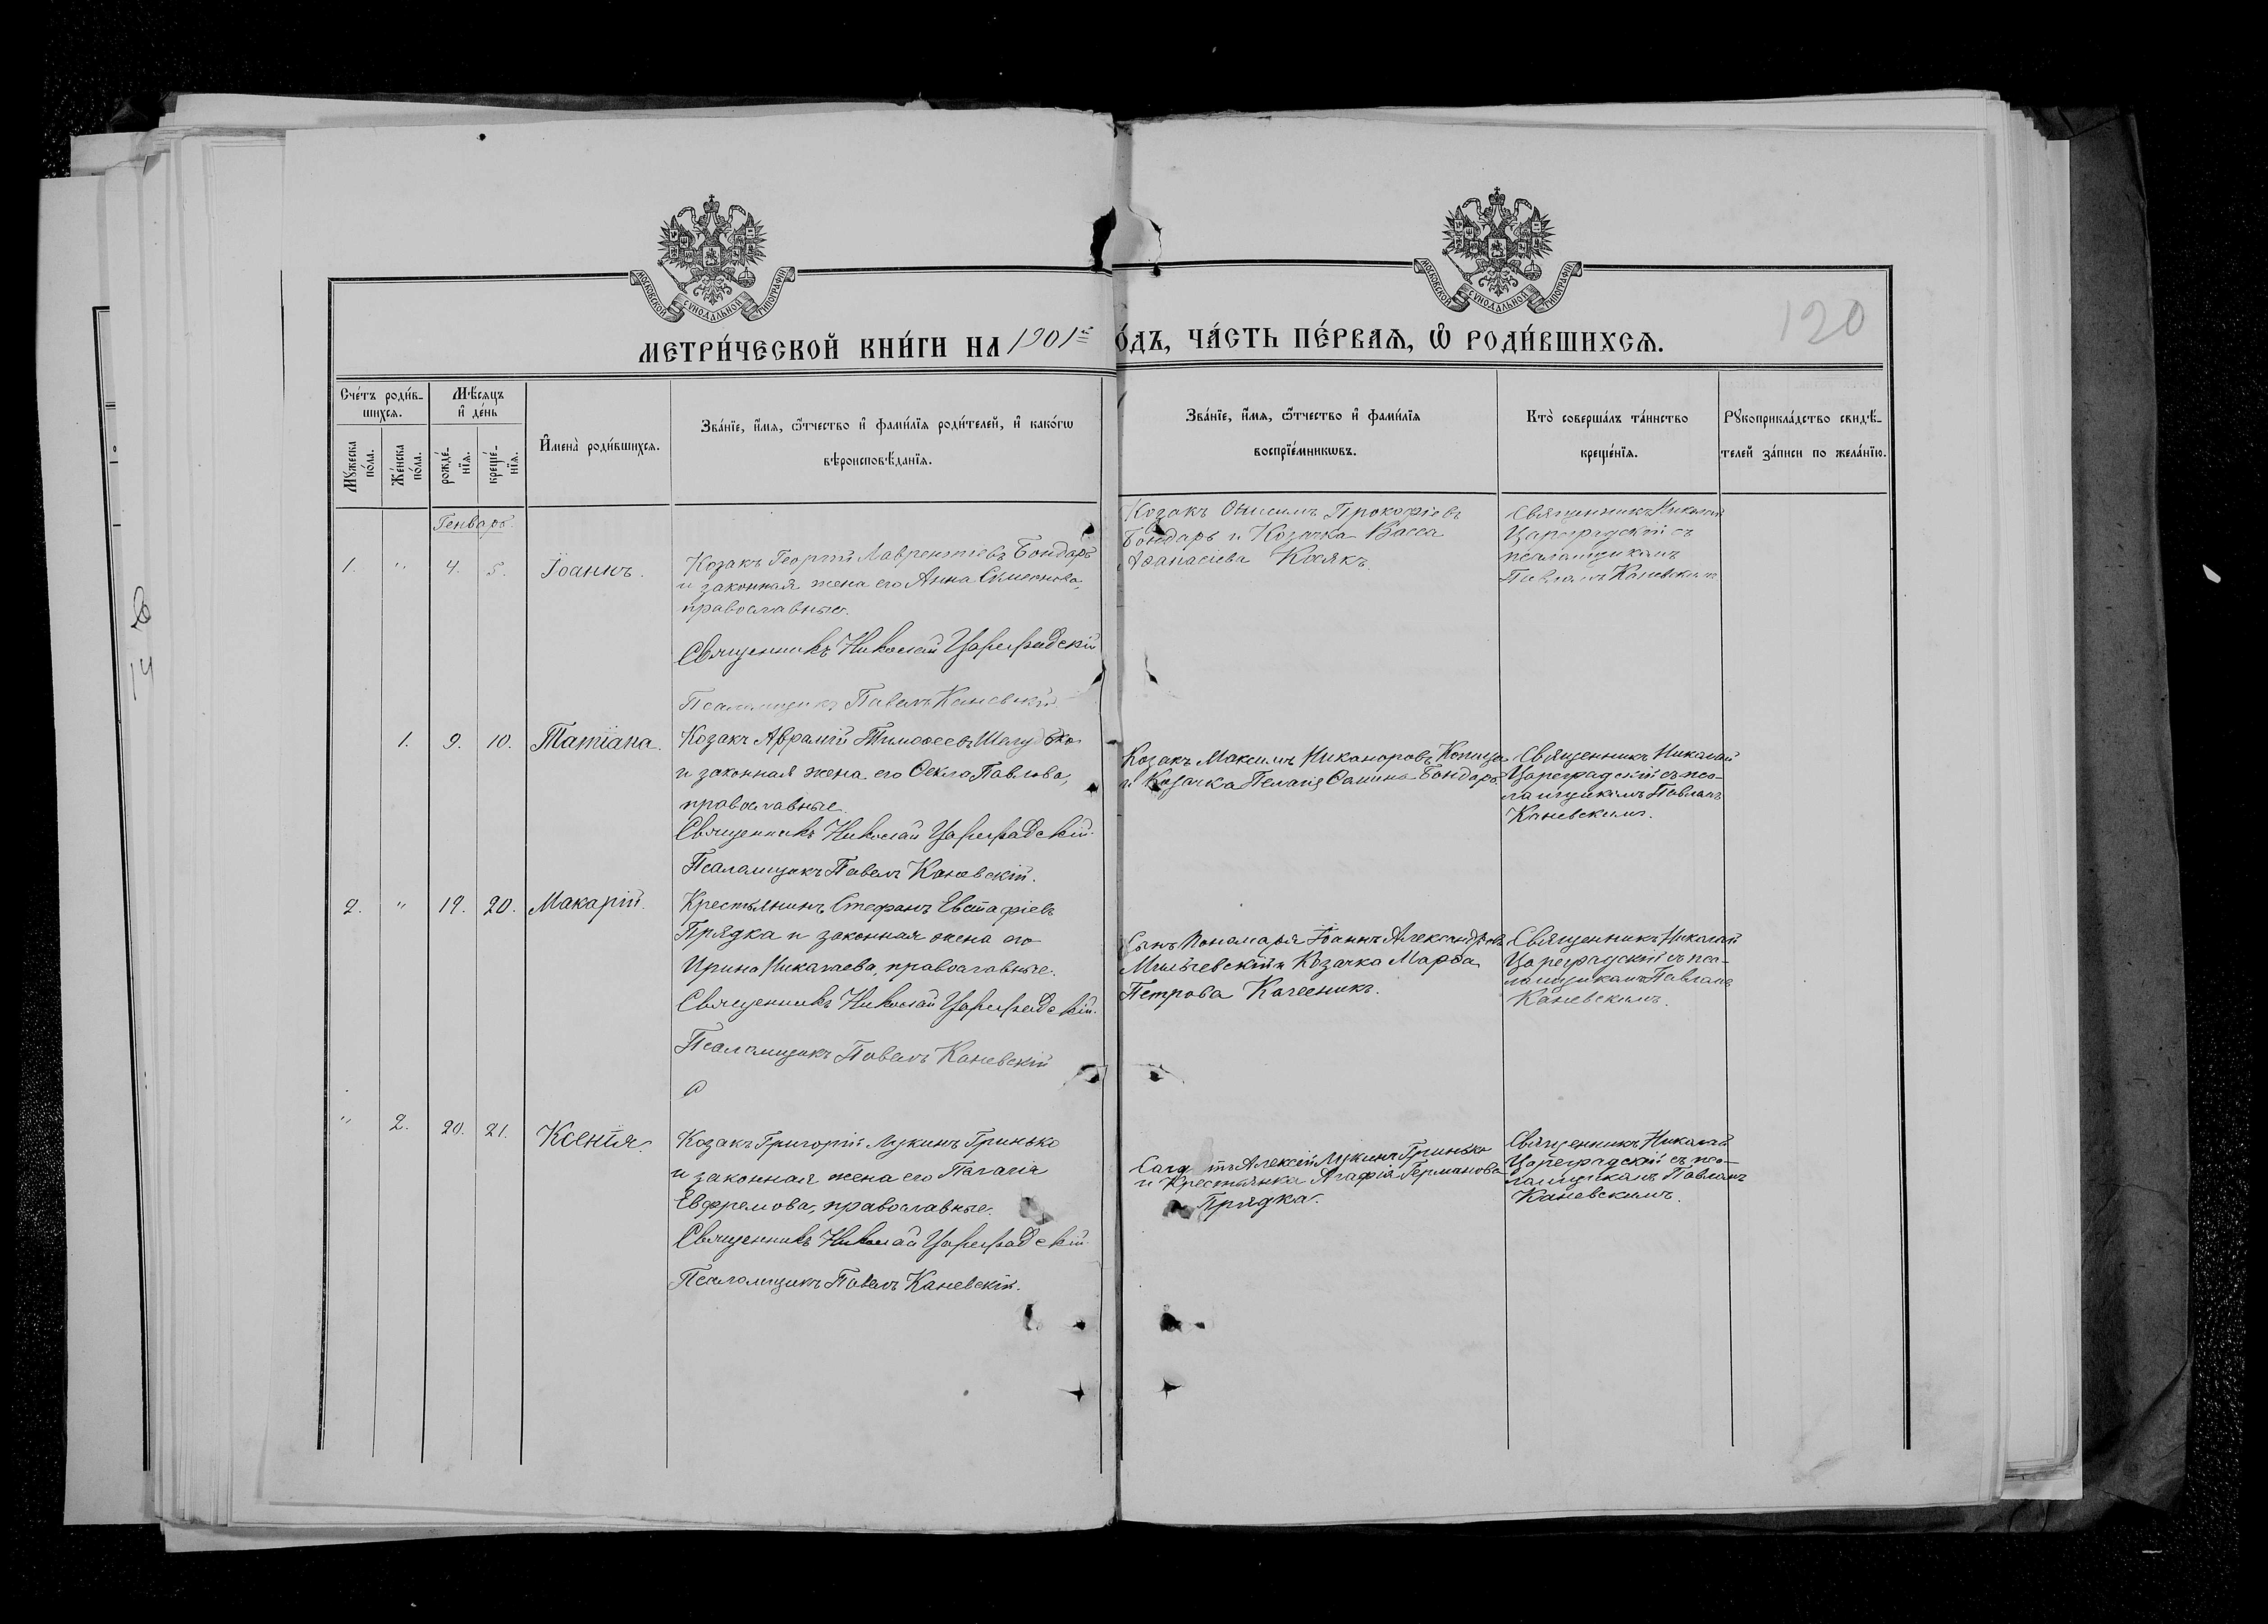 МОСКОВСКОЙ СѴНОДАЛЬНОЙ ТИПОГРАФІИ
МОСКОВСКОЙ СѴНОДАЛЬНОЙ ТИПОГРАФІИ
120
МЕТРИ́ЧЕСКОЙ КНИ́ГИ НА 1901й О́ДЪ, ЧА́СТЬ ПЕ́РВАѦ, Ѡ҆ РОДИ́ВШИХСѦ.
Сче́тъ роди́в-
шихсѧ.
Мѣ́сѧцъ
и҆ де́нь
Мꙋ́жеска по́ла.
Же́нска по́ла.
рожде́-
нїѧ.
креще́-
нїѧ.
И҆мена̀ роди́вшихсѧ.
Зва́нїе, и҆́мѧ, ѻ҆́тчество и҆ фами́лїѧ роди́телей, и҆ како́гѡ
вѣроисповѣ́данїѧ.
Зва́нїе, и҆́мѧ, ѻ҆́тчество и҆ фами́лїѧ
воспрїе́мникѡвъ.
Кто̀ соверша́лъ та́инство
креще́нїѧ.
Рꙋкоприкла́дство свидѣ́-
телей за́писи по жела́нїю.
Генварь
1. " 4. 5. Іоаннъ.
Козакъ Георгій Лаврентіевъ Бондарь
и законная жена его Анна Симеонова,
православные.
Священникъ Николай Цареградскій
Псаломщикъ Павелъ Каневскій.
Козакъ Онисимъ Прокофіевъ
Бондарь и Козачка Васса
Аѳанасіева Косякъ
Священникъ Николай
Цареградскій съ
псаломщикомъ
Павломъ Каневскимъ
1. 9. 10. Татіана.
Козакъ Аврамій Тимоѳеевъ
и законная жена его Ѳекла Павлова,
православные.
Священникъ Николай Цареградскій.
Псаломщикъ Павелъ Каневскій.
Козакъ Максимъ Никаноровъ Копица
и Козачка Пелагія Ѳомина Бондарь
Священникъ Николай
Цареградскій съ пса-
ломщикомъ Павломъ
Каневскимъ.
2. " 19. 20. Макарій.
Крестьянинъ Стефанъ Евстафіевъ
Прядка и законная жена его
Ирина Николаева, православные.
Священникъ Николай Цареградскій.
Псаломщикъ Павелъ Каневскій
Сынъ Пономаря Іоаннъ Александровъ
и Козачка Марѳа
Петрова Колесникъ.
Священникъ Николай
Цареградскій съ пса-
ломщикомъ Павломъ
Каневскимъ.
" 2. 20. 21. Ксенія.
Козакъ Григорій Лукинъ Гринько
и законная жена его Пелагія
Евфремова, православные.
Священникъ Николай Цареградскій.
Псаломщикъ Павелъ Каневскій.
Алексій Лукинъ Гринько
и Крестьянка Агафія Германова
Прядка.
Священникъ Николай
Цареградскій съ пса-
ломщикомъ Павломъ
Каневскимъ.